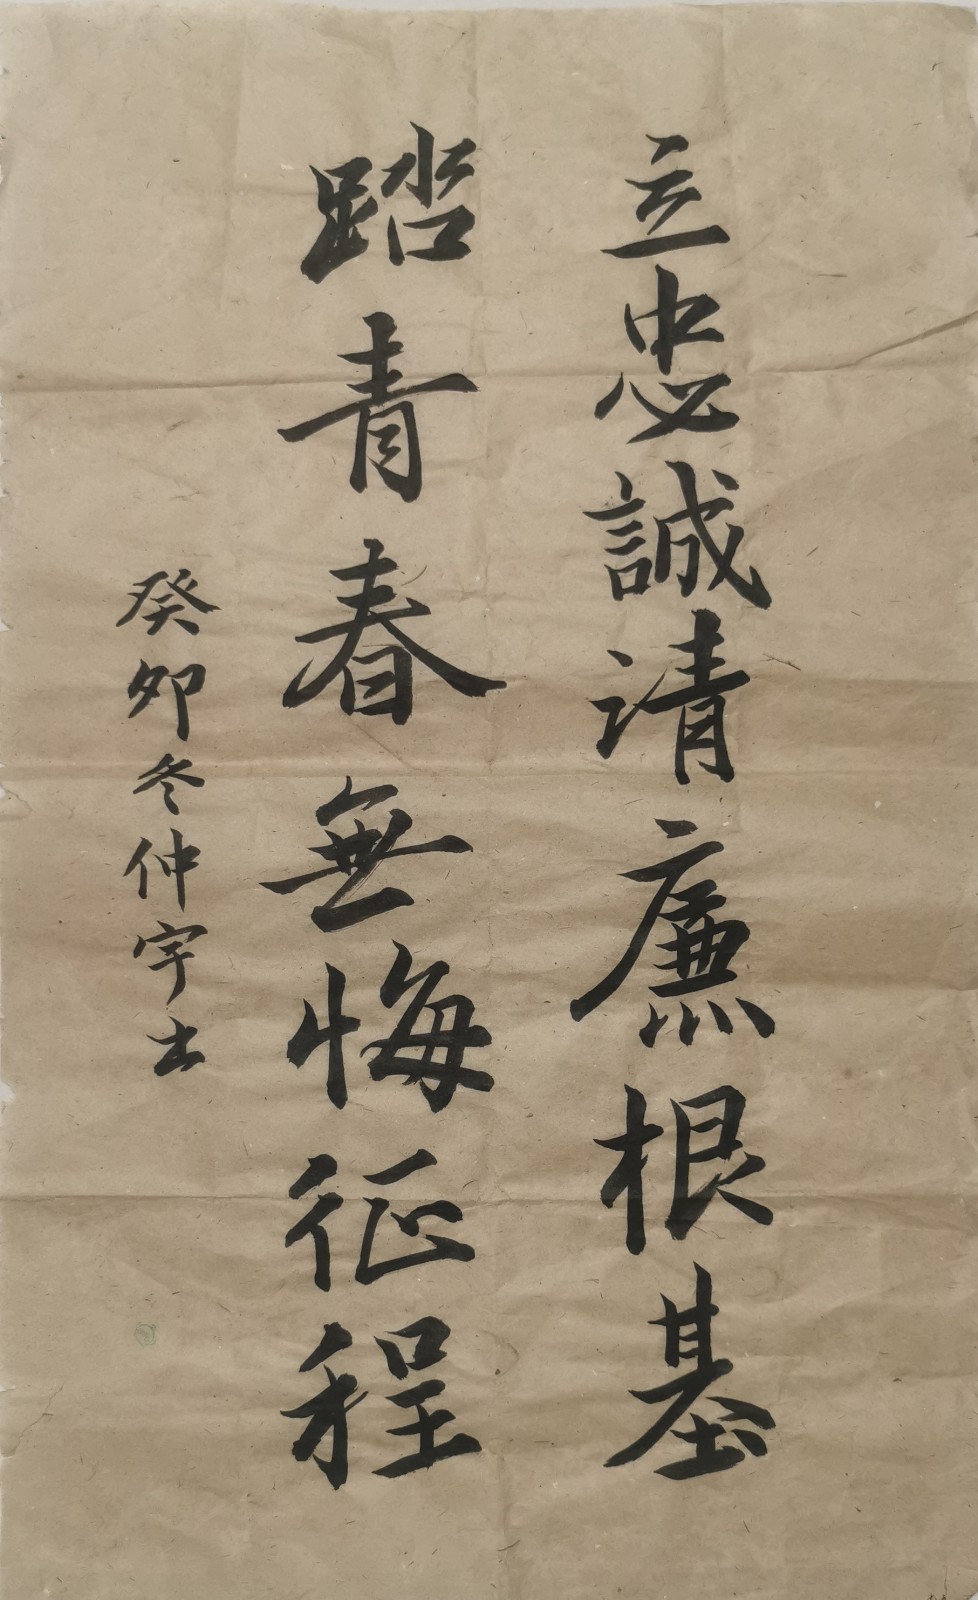 立忠誠请廉根基
踏青春無悔征程
癸卯冬仲宇士